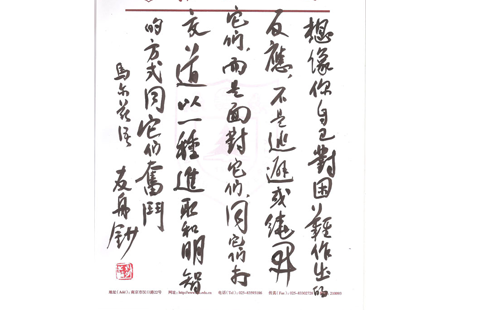 想像你自己對困難作出的
反應,不是逃避或繞開
它們,而是面對它們,同它們打
交道,以一種進取和明智
的方式同它們奮鬥
馬尔兹語
友舟鈔